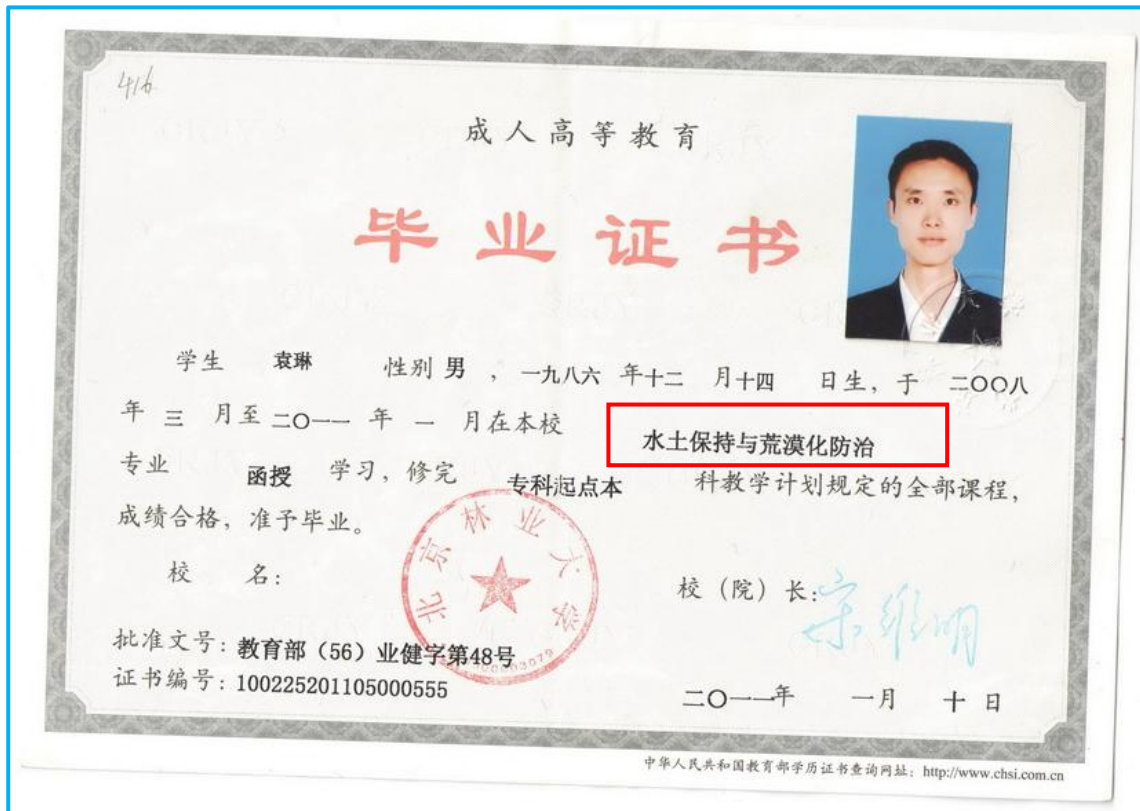 416
成人高等教育
毕业证书
学生 袁琳 性别 男 ，一九八六 年十二 月十四 日生，于 二〇〇八
年 三 月至 二〇一一 年 一 月在本校 水土保持与荒漠化防治
专业 函授 学习，修完 专科起点本 科教学计划规定的全部课程，
成绩合格，准予毕业。
北京林业大学
校 名： 校（院）长：宋维明
批准文号：教育部（56）业健字第48号
证书编号：100225201105000555
二〇一一年 一月 十 日
中华人民共和国教育部学历证书查询网址：http://www.chsi.com.cn